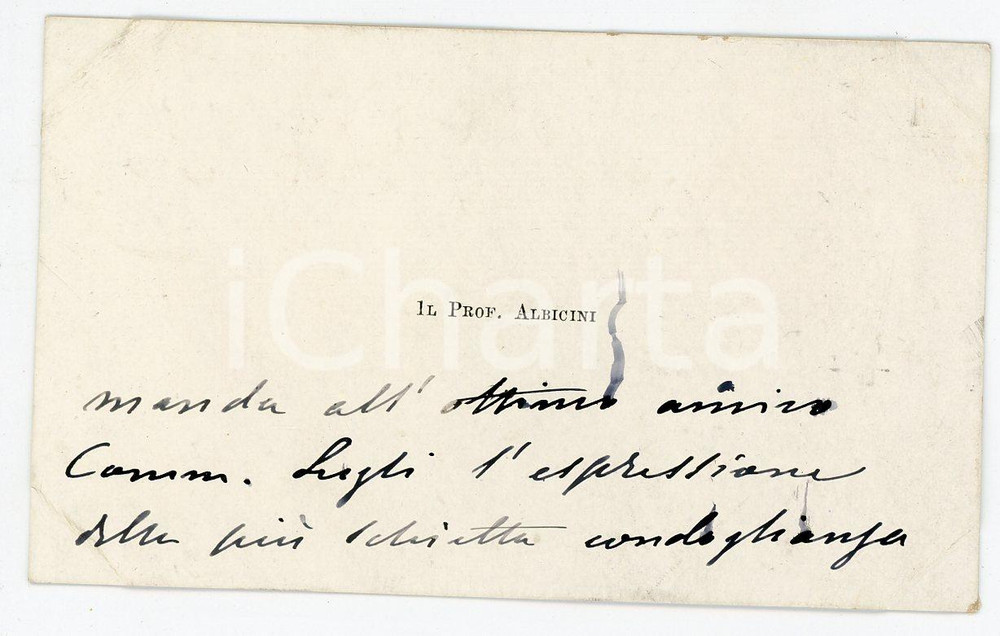 iCharta
IL PROF. ALBICINI
manda all' ottimo amico
Comm. Lugli l'espressione
della più schietta condoglianza